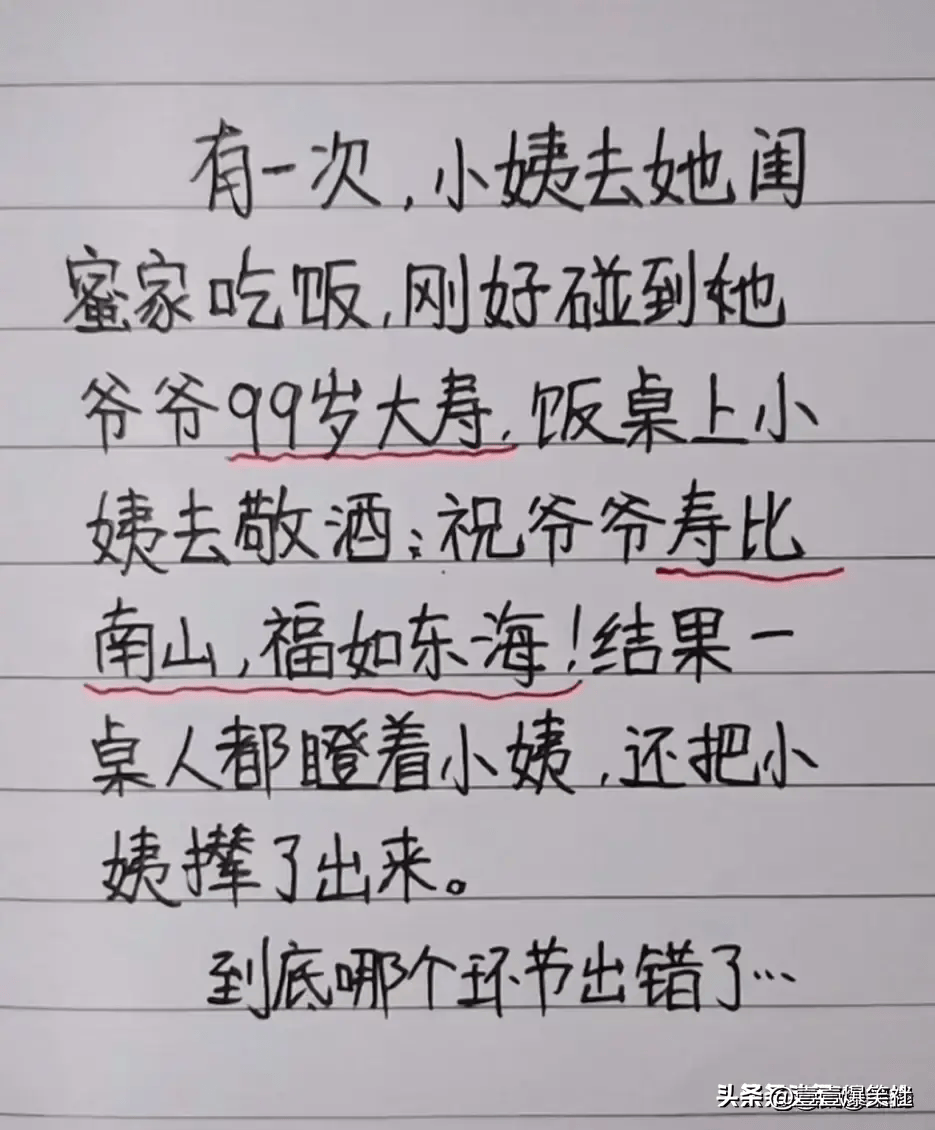 有一次,小姨去她闺
蜜家吃饭,刚好碰到她
爷爷99岁大寿,饭桌上小
姨去敬酒:祝爷爷寿比
南山,福如东海!结果一
桌人都瞪着小姨,还把小
姨撵了出来。
到底哪个环节出错了…
头条 @壹壹爆笑